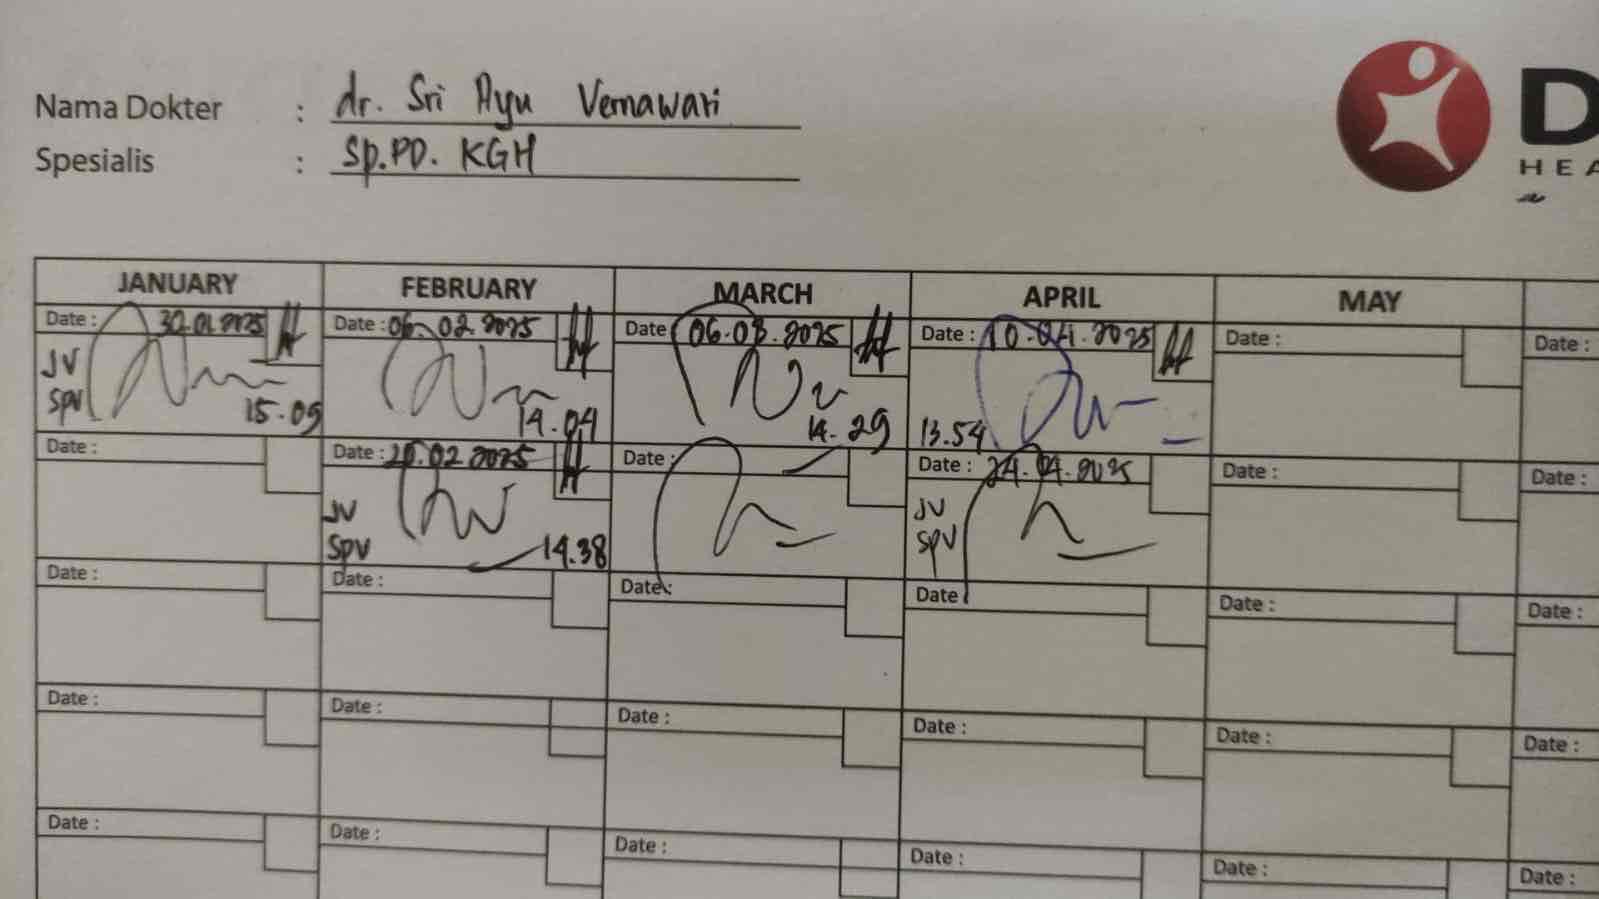 Nama Dokter : dr. Sri Ayu Vernawati
Spesialis : Sp.PD. KGH
D
HEA
JANUARY FEBRUARY MARCH APRIL MAY
Date : 30.01.2025 Date : 06.02.2025 Date : 06.03.2025 Date : 10.04.2025 Date : Date :
JV
SPV 15.09 14.04 14.29 13.54
Date : Date : 20.02.2025 Date : Date : 24.04.2025 Date : Date :
JV JV
SPV 14.38 SPV
Date : Date : Date : Date : Date : Date :
Date : Date : Date : Date : Date : Date :
Date : Date : Date : Date : Date : Date :